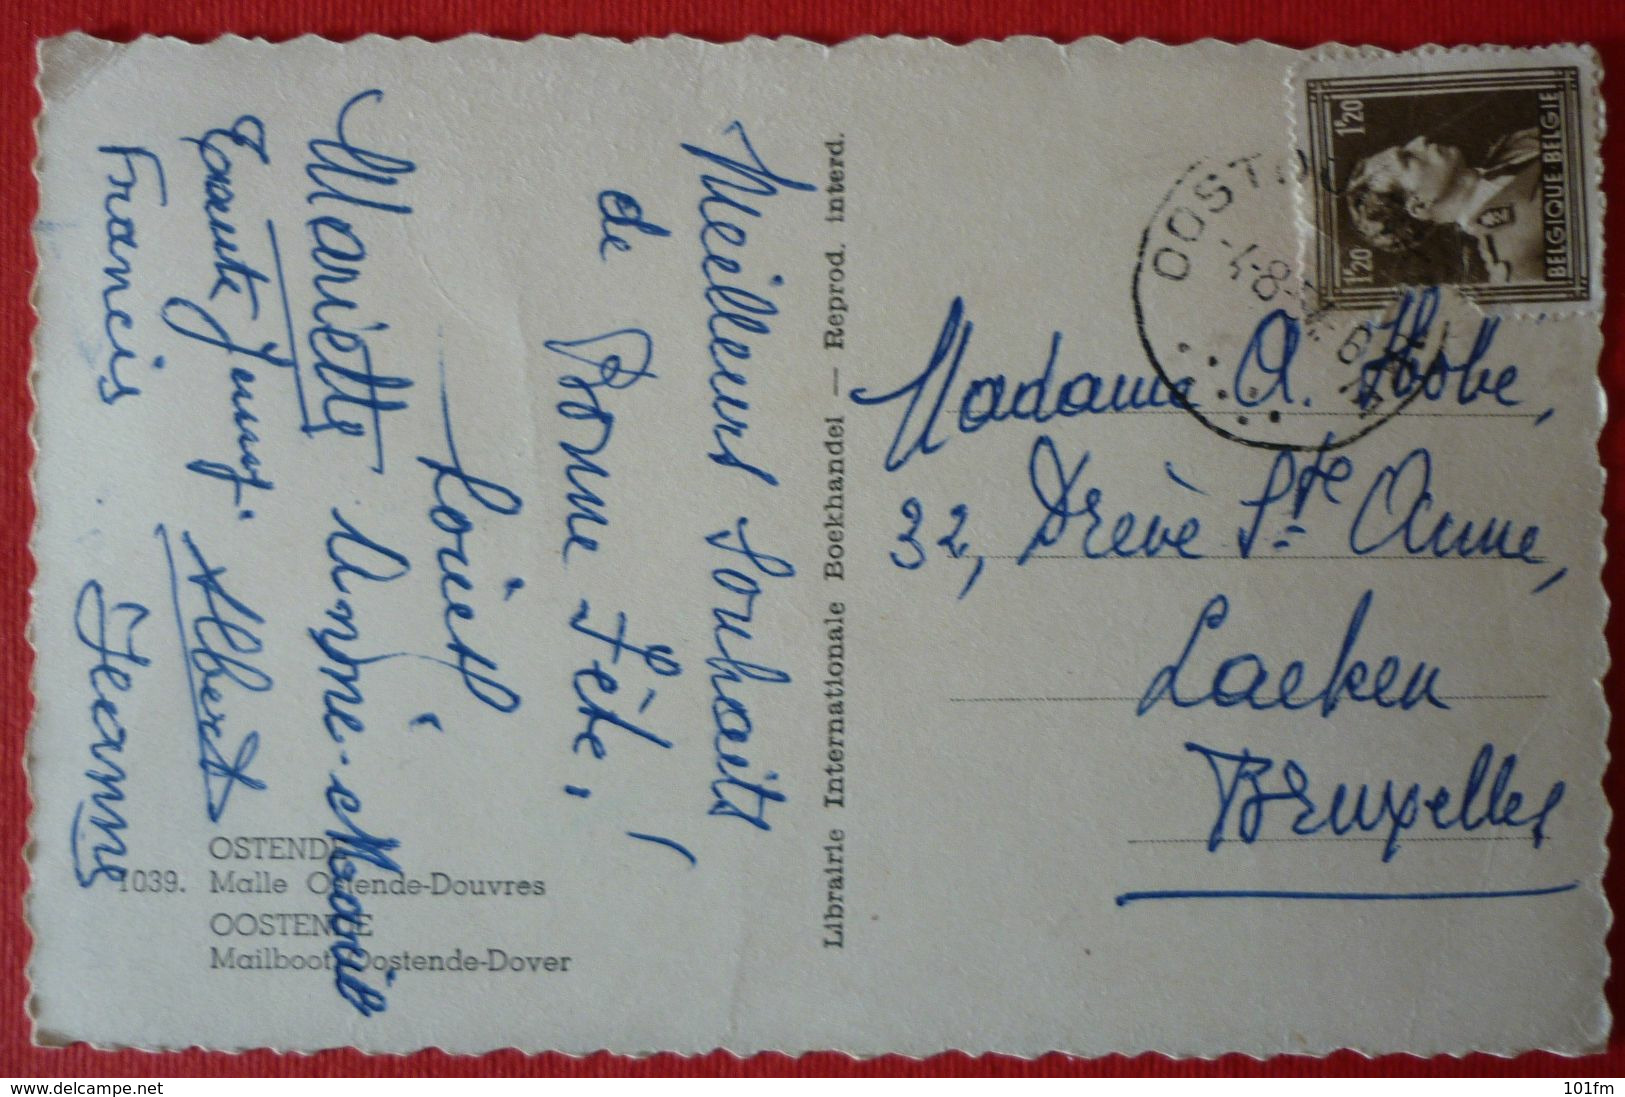 Meilleurs Souhaits
de Bonne Fête!
Louisa
Mariette Anne-Marie
Tante Jenny. Albert
Francis Jeanne
OSTENDE
1039. Malle Ostende-Douvres
OOSTENDE
Mailboot Oostende-Dover
Librairie Internationale Boekhandel — Reprod. interd.
1F20 1F20
BELGIQUE BELGIE
OOST
Madame A.
32, Drève Ste Anne,
Laeken
Bruxelles
www.delcampe.net
101fm